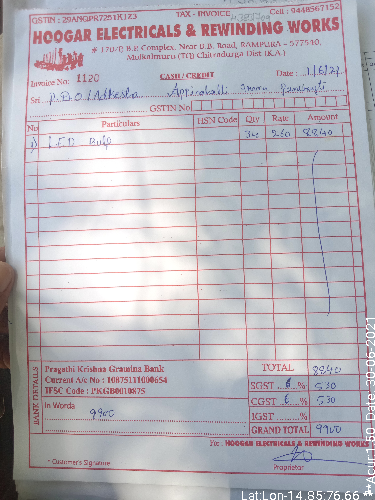 GSTIN : 29ANGPR7251K1Z3 TAX - INVOICE Cell : 9448567152
HOOGAR ELECTRICALS & REWINDING WORKS
# 170/6 B.P. Complex, Near U.B. Road, RAMPURA - 577540,
Molkalmuru (TQ) Chitradurga Dist (KA)
Invoice No: 1120 CASH / CREDIT Date :
Sri P.D.O / Adkesha Appinahalli Grama
GSTIN No
No Particulars HSN Code Qty Rate Amount
1) LED Bulb 34 260 8840
BANK DETAILS
Pragathi Krishna Gramina Bank TOTAL 8840
Current A/c No : 10875111000654 SGST 6 % 530
IFSC Code : PKGB0010875 CGST 6 % 530
In Words 9900 IGST ........%
GRAND TOTAL 9900
For : HOOGAR ELECTRICALS & REWINDING WORKS
* Customer's Signature Proprietor
Lat:Lon-14.85:76.66
**Acur:1.50 Date:30-06-2021